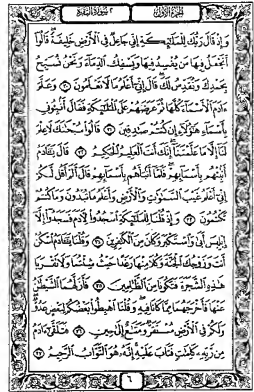 الجزء الأول
سورة البقرة
وَإِذْ قَالَ رَبُّكَ لِلْمَلَٰٓئِكَةِ إِنِّى جَاعِلٌ فِى ٱلْأَرْضِ خَلِيفَةً قَالُوٓا۟
أَتَجْعَلُ فِيهَا مَن يُفْسِدُ فِيهَا وَيَسْفِكُ ٱلدِّمَآءَ وَنَحْنُ نُسَبِّحُ
بِحَمْدِكَ وَنُقَدِّسُ لَكَ قَالَ إِنِّىٓ أَعْلَمُ مَا لَا تَعْلَمُونَ ٣٠ وَعَلَّمَ
ءَادَمَ ٱلْأَسْمَآءَ كُلَّهَا ثُمَّ عَرَضَهُمْ عَلَى ٱلْمَلَٰٓئِكَةِ فَقَالَ أَنۢبِـُٔونِى
بِأَسْمَآءِ هَٰٓؤُلَآءِ إِن كُنتُمْ صَٰدِقِينَ ٣١ قَالُوا۟ سُبْحَٰنَكَ لَا عِلْمَ
لَنَآ إِلَّا مَا عَلَّمْتَنَآ إِنَّكَ أَنتَ ٱلْعَلِيمُ ٱلْحَكِيمُ ٣٢ قَالَ يَٰٓـَٔادَمُ
أَنۢبِئْهُم بِأَسْمَآئِهِمْ فَلَمَّآ أَنۢبَأَهُم بِأَسْمَآئِهِمْ قَالَ أَلَمْ أَقُل لَّكُمْ
إِنِّىٓ أَعْلَمُ غَيْبَ ٱلسَّمَٰوَٰتِ وَٱلْأَرْضِ وَأَعْلَمُ مَا تُبْدُونَ وَمَا كُنتُمْ
تَكْتُمُونَ ٣٣ وَإِذْ قُلْنَا لِلْمَلَٰٓئِكَةِ ٱسْجُدُوا۟ لِـَٔادَمَ فَسَجَدُوٓا۟ إِلَّآ
إِبْلِيسَ أَبَىٰ وَٱسْتَكْبَرَ وَكَانَ مِنَ ٱلْكَٰفِرِينَ ٣٤ وَقُلْنَا يَٰٓـَٔادَمُ ٱسْكُنْ
أَنتَ وَزَوْجُكَ ٱلْجَنَّةَ وَكُلَا مِنْهَا رَغَدًا حَيْثُ شِئْتُمَا وَلَا تَقْرَبَا
هَٰذِهِ ٱلشَّجَرَةَ فَتَكُونَا مِنَ ٱلظَّٰلِمِينَ ٣٥ فَأَزَلَّهُمَا ٱلشَّيْطَٰنُ
عَنْهَا فَأَخْرَجَهُمَا مِمَّا كَانَا فِيهِ وَقُلْنَا ٱهْبِطُوا۟ بَعْضُكُمْ لِبَعْضٍ عَدُوٌّ
وَلَكُمْ فِى ٱلْأَرْضِ مُسْتَقَرٌّ وَمَتَٰعٌ إِلَىٰ حِينٍ ٣٦ فَتَلَقَّىٰٓ ءَادَمُ
مِن رَّبِّهِۦ كَلِمَٰتٍ فَتَابَ عَلَيْهِ إِنَّهُۥ هُوَ ٱلتَّوَّابُ ٱلرَّحِيمُ ٣٧
٦